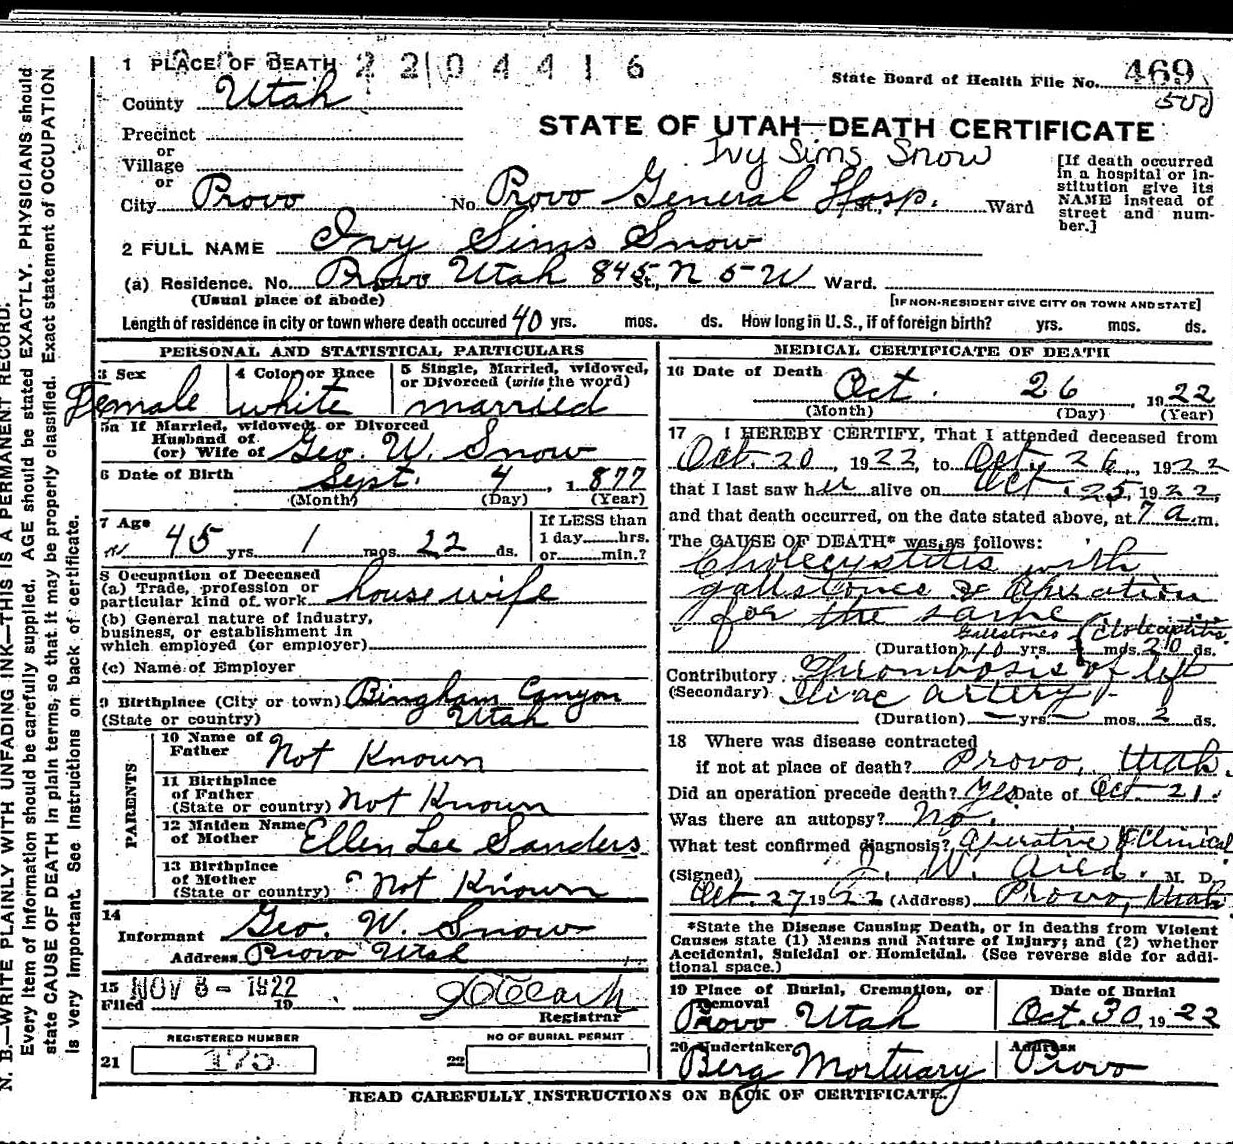 1 PLACE OF DEATH 2 2 0 4 4 1 6
State Board of Health File No. 469
County Utah
500
STATE OF UTAH—DEATH CERTIFICATE
Precinct
or
Village
or
Ivy Sims Snow
[If death occurred in a hospital or institution give its NAME instead of street and number.]
City Provo No. Provo General Hosp. St., Ward
2 FULL NAME Ivy Sims Snow
(a) Residence. No. Provo Utah 845 N 5 W St., Ward.
(Usual place of abode)
[IF NON-RESIDENT GIVE CITY OR TOWN AND STATE]
Length of residence in city or town where death occured 40 yrs. mos. ds. How long in U.S., if of foreign birth? yrs. mos. ds.
PERSONAL AND STATISTICAL PARTICULARS
3 Sex
Female
4 Color or Race
white
5 Single, Married, widowed, or Divorced (write the word)
married
5a If Married, widowed, or Divorced
Husband of
(or) Wife of Geo. W. Snow
6 Date of Birth Sept. 4, 1877
(Month) (Day) (Year)
7 Age
45 yrs. 1 mos. 22 ds.
If LESS than
1 day......hrs.
or......min.?
8 Occupation of Deceased
(a) Trade, profession or
particular kind of work housewife
(b) General nature of industry,
business, or establishment in
which employed (or employer)
(c) Name of Employer
9 Birthplace (City or town) Bingham Canyon
(State or country) Utah
PARENTS
10 Name of
Father Not Known
11 Birthplace
of Father
(State or country) Not Known
12 Maiden Name
of Mother Ellen Lee Sanders
13 Birthplace
of Mother
(State or country) Not Known
14
Informant Geo. W. Snow
Address Provo Utah
15 NOV 8 - 1922
Filed 19
Registrar
REGISTERED NUMBER
21 175
NO OF BURIAL PERMIT
22
MEDICAL CERTIFICATE OF DEATH
16 Date of Death
Oct. 26, 1922
(Month) (Day) (Year)
17 I HEREBY CERTIFY, That I attended deceased from
Oct. 20, 1922, to Oct. 26, 1922
that I last saw her alive on Oct. 25, 1922,
and that death occurred, on the date stated above, at 7 a.m.
The CAUSE OF DEATH* was as follows:
Cholecystitis with
gallstones & Operation
for the same
Gallstones Cholecystitis.
(Duration) 10 yrs. mos. 20 ds.
Contributory Thrombosis of left
(Secondary) Iliac artery
(Duration) — yrs. — mos. 2 ds.
18 Where was disease contracted
if not at place of death? Provo, Utah.
Did an operation precede death? Yes Date of Oct. 21.
Was there an autopsy? No.
What test confirmed diagnosis? Operative & Clinical
(Signed) J. W. Aird. M. D.
Oct. 27, 1922 (Address) Provo, Utah
*State the Disease Causing Death, or in deaths from Violent
Causes state (1) Means and Nature of Injury; and (2) whether
Accidental, Suicidal or Homicidal. (See reverse side for addi-
tional space.)
19 Place of Burial, Cremation, or
Removal
Provo Utah
Date of Burial
Oct. 30, 1922
20 Undertaker
Berg Mortuary
Address
Provo
READ CAREFULLY INSTRUCTIONS ON BACK OF CERTIFICATE.
N. B.—WRITE PLAINLY WITH UNFADING INK—THIS IS A PERMANENT RECORD.
Every item of information should be carefully supplied. AGE should be stated EXACTLY. PHYSICIANS should
state CAUSE OF DEATH in plain terms, so that it may be properly classified. Exact statement of OCCUPATION
is very important. See instructions on back of certificate.